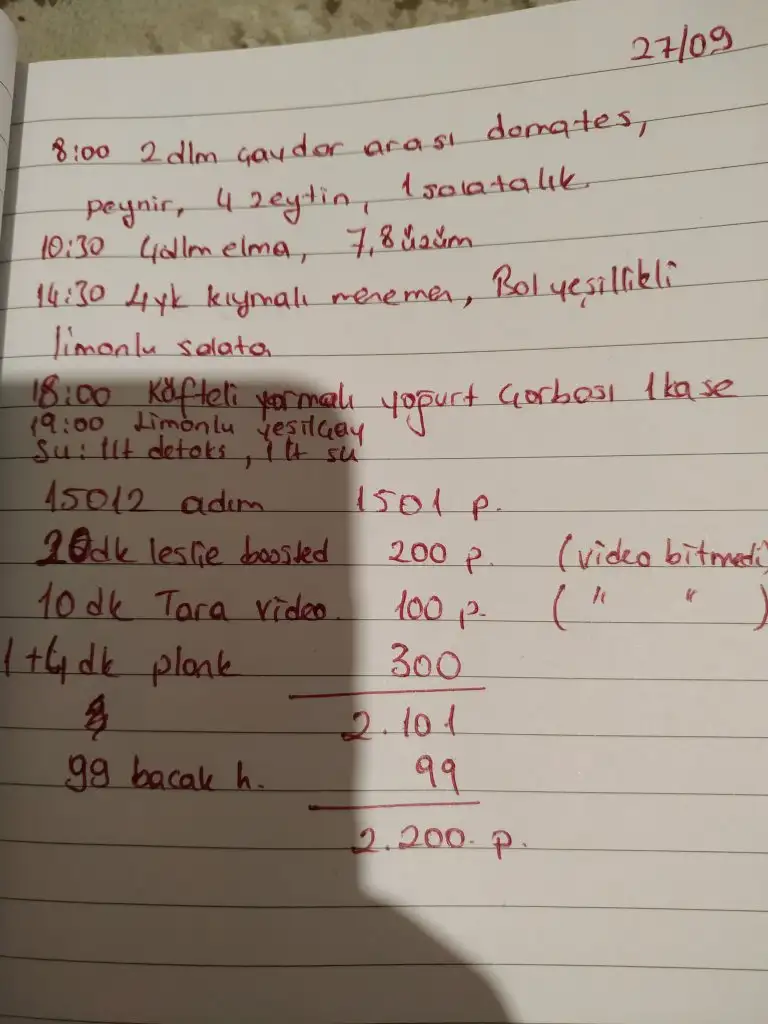 27/09
8:00 2 dlm çavdar arası domates,
peynir, 4 zeytin, 1 salatalık.
10:30 4dlm elma, 7,8 üzüm
14:30 4 yk kıymalı menemen, Bol yeşillikli
limonlu salata
18:00 Köfteli yarmalı yoğurt çorbası 1 kase
19:00 Limonlu yeşilçay
Su: 1lt detoks, 1 lt su
15012 adım 1501 p.
20dk leslie boosted 200 p. (video bitmedi)
10 dk Tara video 100 p. ( " " )
1+4 dk plank 300
2.101
99 bacak h. 99
2.200. p.